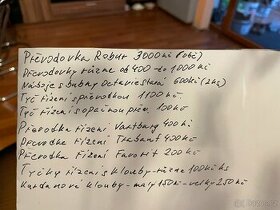 Převodovka Robur 3000 Kč
Převodovky různé od 400 do 1000 Kč
Náboje s bubny Octavie stará 600 Kč (2 ks)
Tyč řízení s převodkou 1100 Kč
Tyč řízení s opačnou 100 Kč
Převodka řízení Vartburg 400 Kč
Převodka řízení Trabant 400 Kč
Převodka řízení Favorit 200 Kč
Tyčky řízení s klouby-různé 100 Kč ks
Kardanové klouby-malý 150 Kč-velký 250 Kč